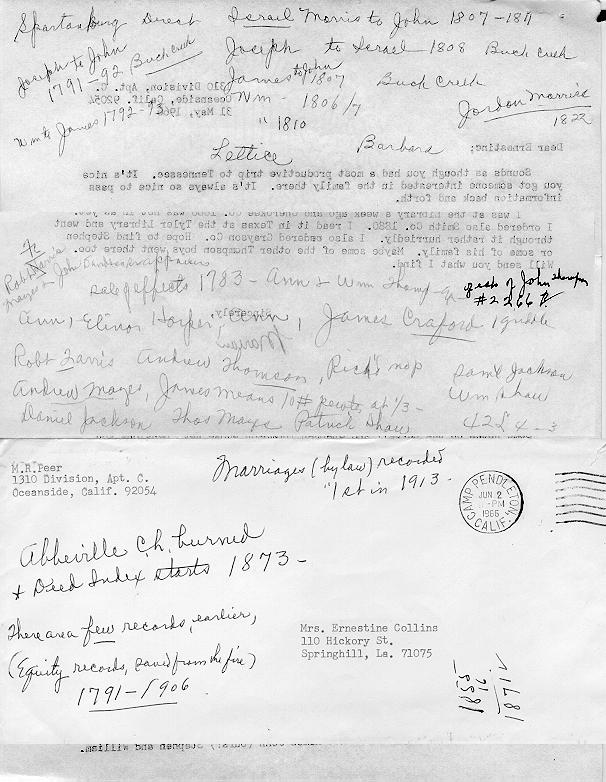 Spartanburg Direct Israel Morris to John 1807-1811
Joseph to John
1791-92 Buck Creek
Joseph to Israel 1808 Buck Creek
James to John 1807 Buck Creek
Wm to James 1792-93
Wm - 1806/7
" 1810
Jordon Morriss
1822
Lettice Barbara
310 Division, Apt. C.
Oceanside, Calif. 92054
31 May, 1966
Dear Ernestine:
Sounds as though you had a most productive trip to Tennessee. It's nice
you got someone interested in the family there. It's always so nice to pass
information back and forth.
I was at the Library a week ago and Cherokee Co. 1880 was not in as yet.
I ordered also Smith Co. 1880. I read it in Texas at the Tyler Library and went
through it rather hurriedly. I also ordered Grayson Co. Hope to find Stephen
or some of his family. Maybe some of the other Thompson boys went there too.
Will send you what I find.
appraisers
sale of effects 1783 - Ann & Wm Thomp-
gests of John Thompson
#2266
Ann, Elinor Harper, Ann, James Craford 1 griddle
Robt Farris Andrew Thomson, Rick's Saml Jackson
Andrew Mayes, James Means 10# pewter, at 1/3- Wm Shaw
Daniel Jackson Thos Mays Patrick Shaw 42£ 4-3
M.R.Peer
1310 Division, Apt. C.
Oceanside, Calif. 92054
Marriages (by law) recorded
"1st in 1913.
CAMP PENDLETON
JUN 2
PM
1966
CALIF.
Abbeville C.h. burned
& Deed Index starts 1873-
There are a few records, earlier,
(Equity records, saved from the fire)
1791-1906
Mrs. Ernestine Collins
110 Hickory St.
Springhill, La. 71075
Stephen and William.